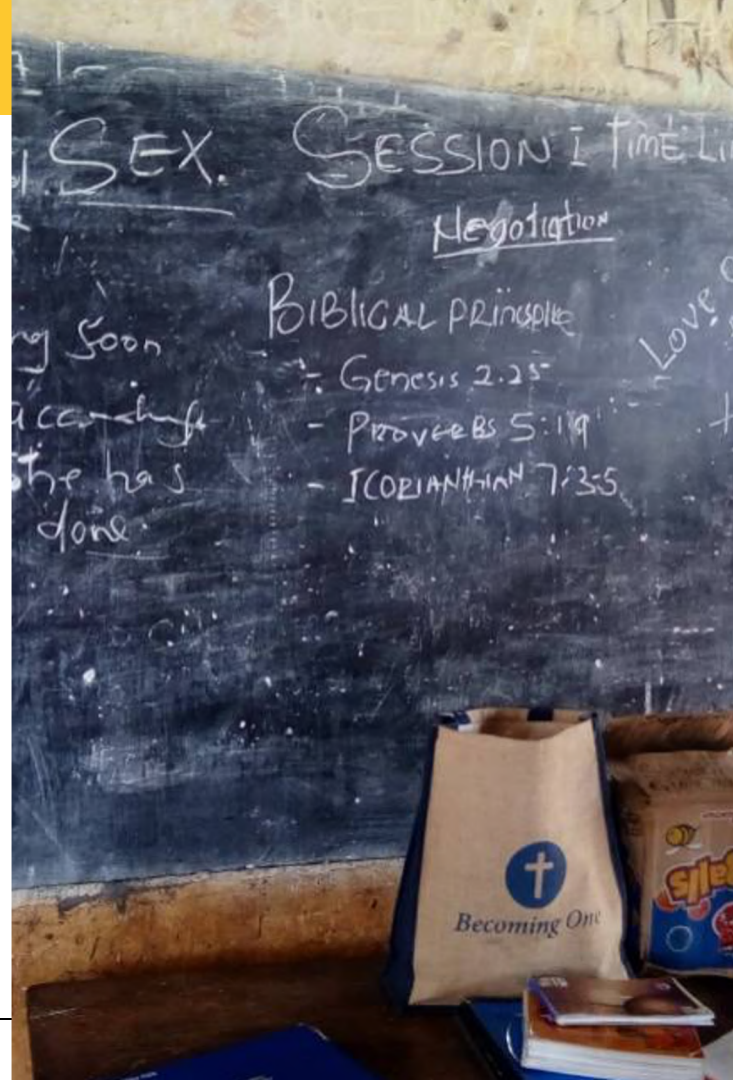 SEX. SESSION I TIME LI
Negotiation
BIBLICAL PRINCIPLE
- Genesis 2.25
- PROVERBS 5:19
- I CORIANTHIAN 7:3-5
Love
ng Soon
accordingly
she has
done.
Becoming One